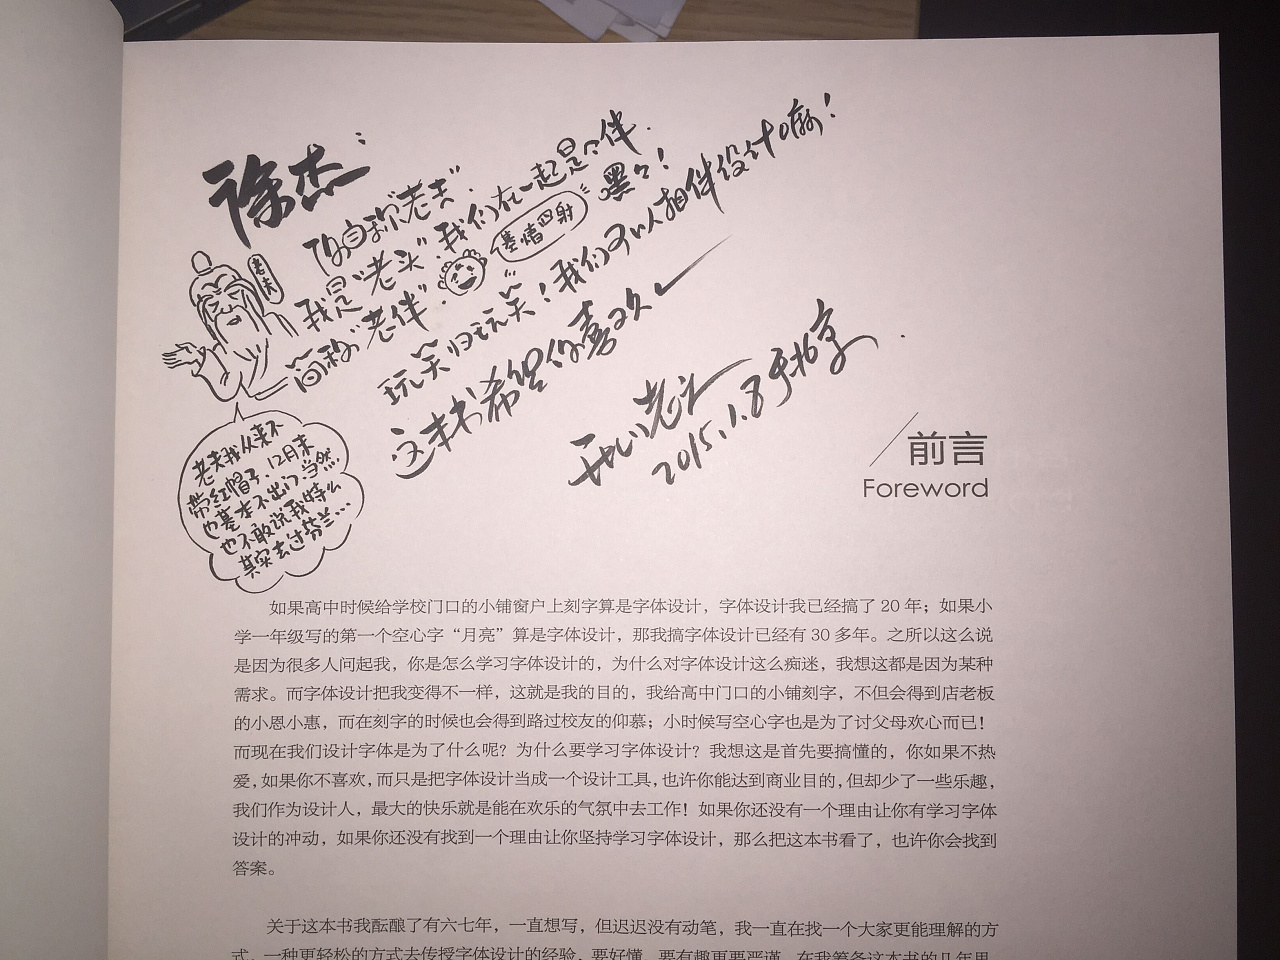 徐杰：
你自称"老夫"，
我是"老头"，我们在一起是个伴，
简称"老伴"，
基情四射
嘿嘿！
玩笑归玩笑！我们可以相伴设计嘛！
这本书希望你喜欢
老夫
老夫我从来不
带红帽子，12月末
也基本不出门，当然
也不敢说我特么
其实去过芬兰…
2015.1.8于北京
前言
Foreword
如果高中时候给学校门口的小铺窗户上刻字算是字体设计，字体设计我已经搞了 20 年；如果小
学一年级写的第一个空心字“月亮”算是字体设计，那我搞字体设计已经有 30 多年。之所以这么说
是因为很多人问起我，你是怎么学习字体设计的，为什么对字体设计这么痴迷，我想这都是因为某种
需求。而字体设计把我变得不一样，这就是我的目的，我给高中门口的小铺刻字，不但会得到店老板
的小恩小惠，而在刻字的时候也会得到路过校友的仰慕；小时候写空心字也是为了讨父母欢心而已！
而现在我们设计字体是为了什么呢？为什么要学习字体设计？我想这是首先要搞懂的，你如果不热
爱，如果你不喜欢，而只是把字体设计当成一个设计工具，也许你能达到商业目的，但却少了一些乐趣，
我们作为设计人，最大的快乐就是能在欢乐的气氛中去工作！如果你还没有一个理由让你有学习字体
设计的冲动，如果你还没有找到一个理由让你坚持学习字体设计，那么把这本书看了，也许你会找到
答案。
关于这本书我酝酿了有六七年，一直想写，但迟迟没有动笔，我一直在找一个大家更能理解的方
式，一种更轻松的方式去传授字体设计的经验，要好懂，要有趣更要严谨，在我筹备这本书的几年里